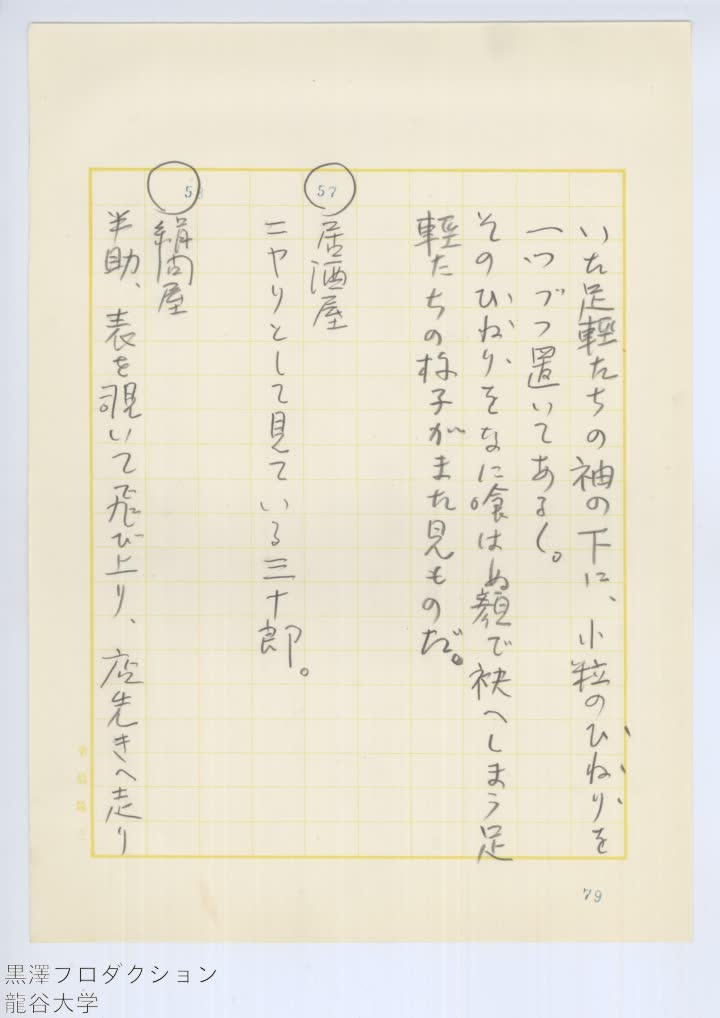 いた足軽たちの袖の下に、小粒のひねりを
一つづつ置いてある（。
そのひねりをなに喰はぬ顔で袂へしまう足
軽たちの様子がまた見ものだ。
57
居酒屋
ニヤリとして見ている三十郎。
58
絹問屋
半助、表を覗いて飛び上り、店先きへ走り
79
黒澤プロダクション
龍谷大学